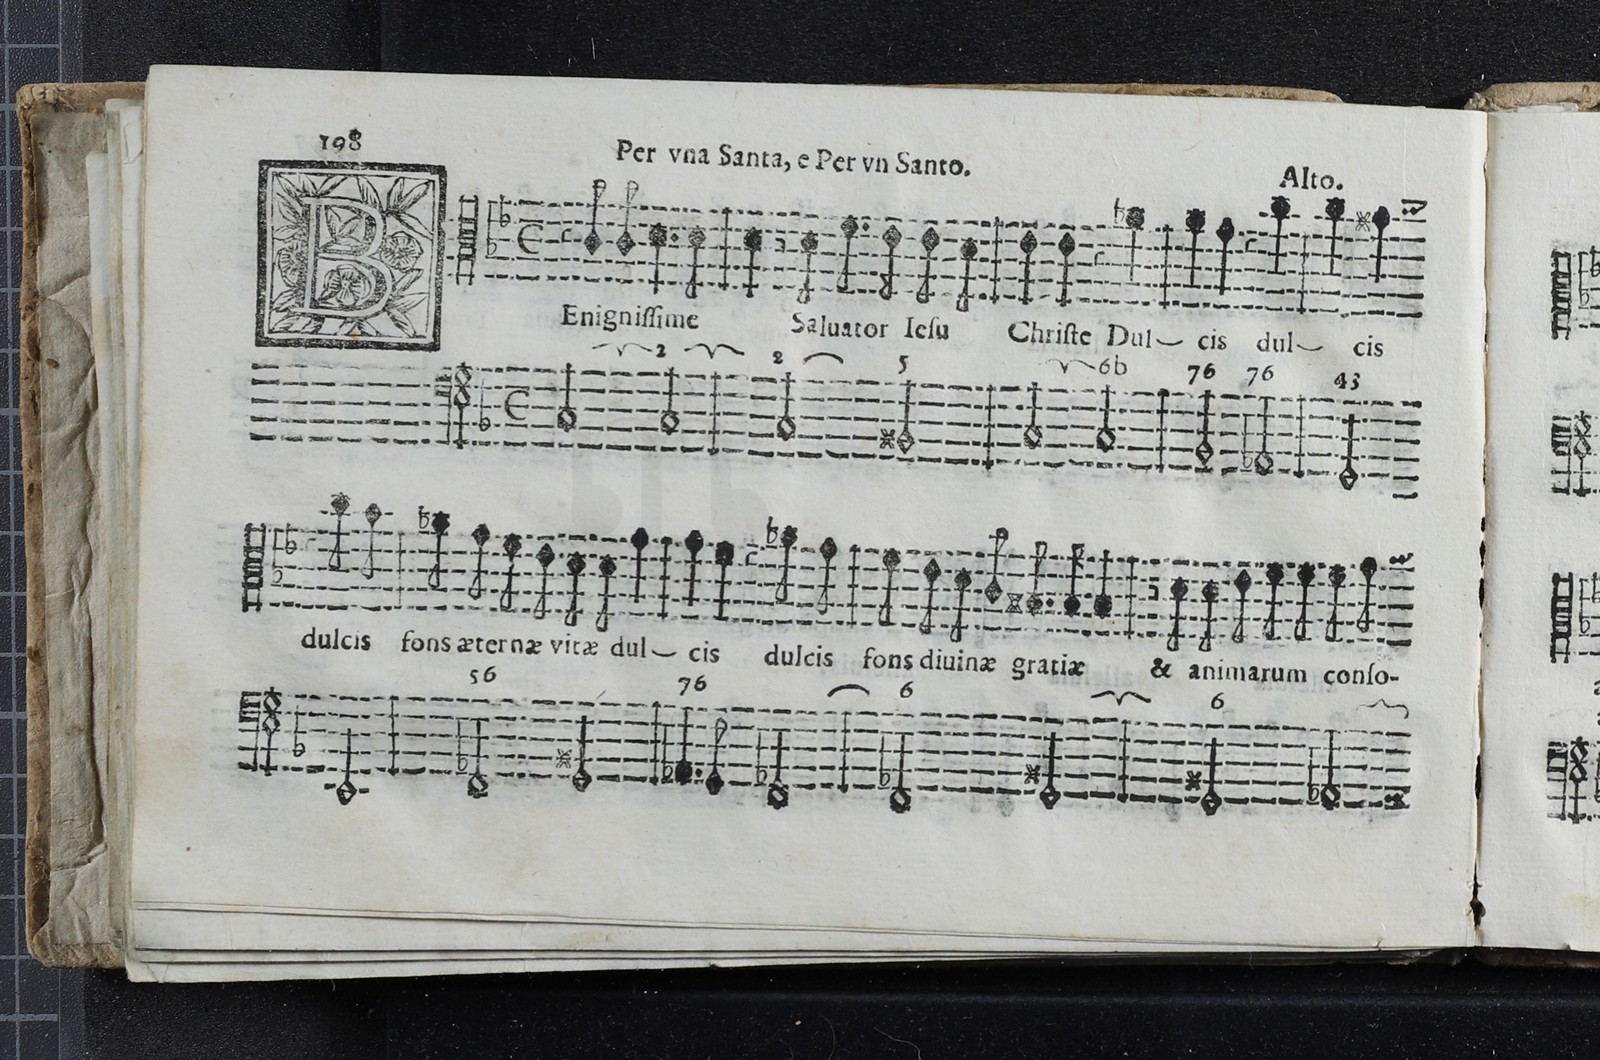 198
Per vna Santa, e Per vn Santo.
Alto.
BEnigniſſime Saluator Ieſu Chriſte Dul- cis dul- cis
2 2 5 6b 76 76 43
dulcis fons æternæ vitæ dul- cis dulcis fons diuinæ gratiæ & animarum conſo-
56 76 6 6